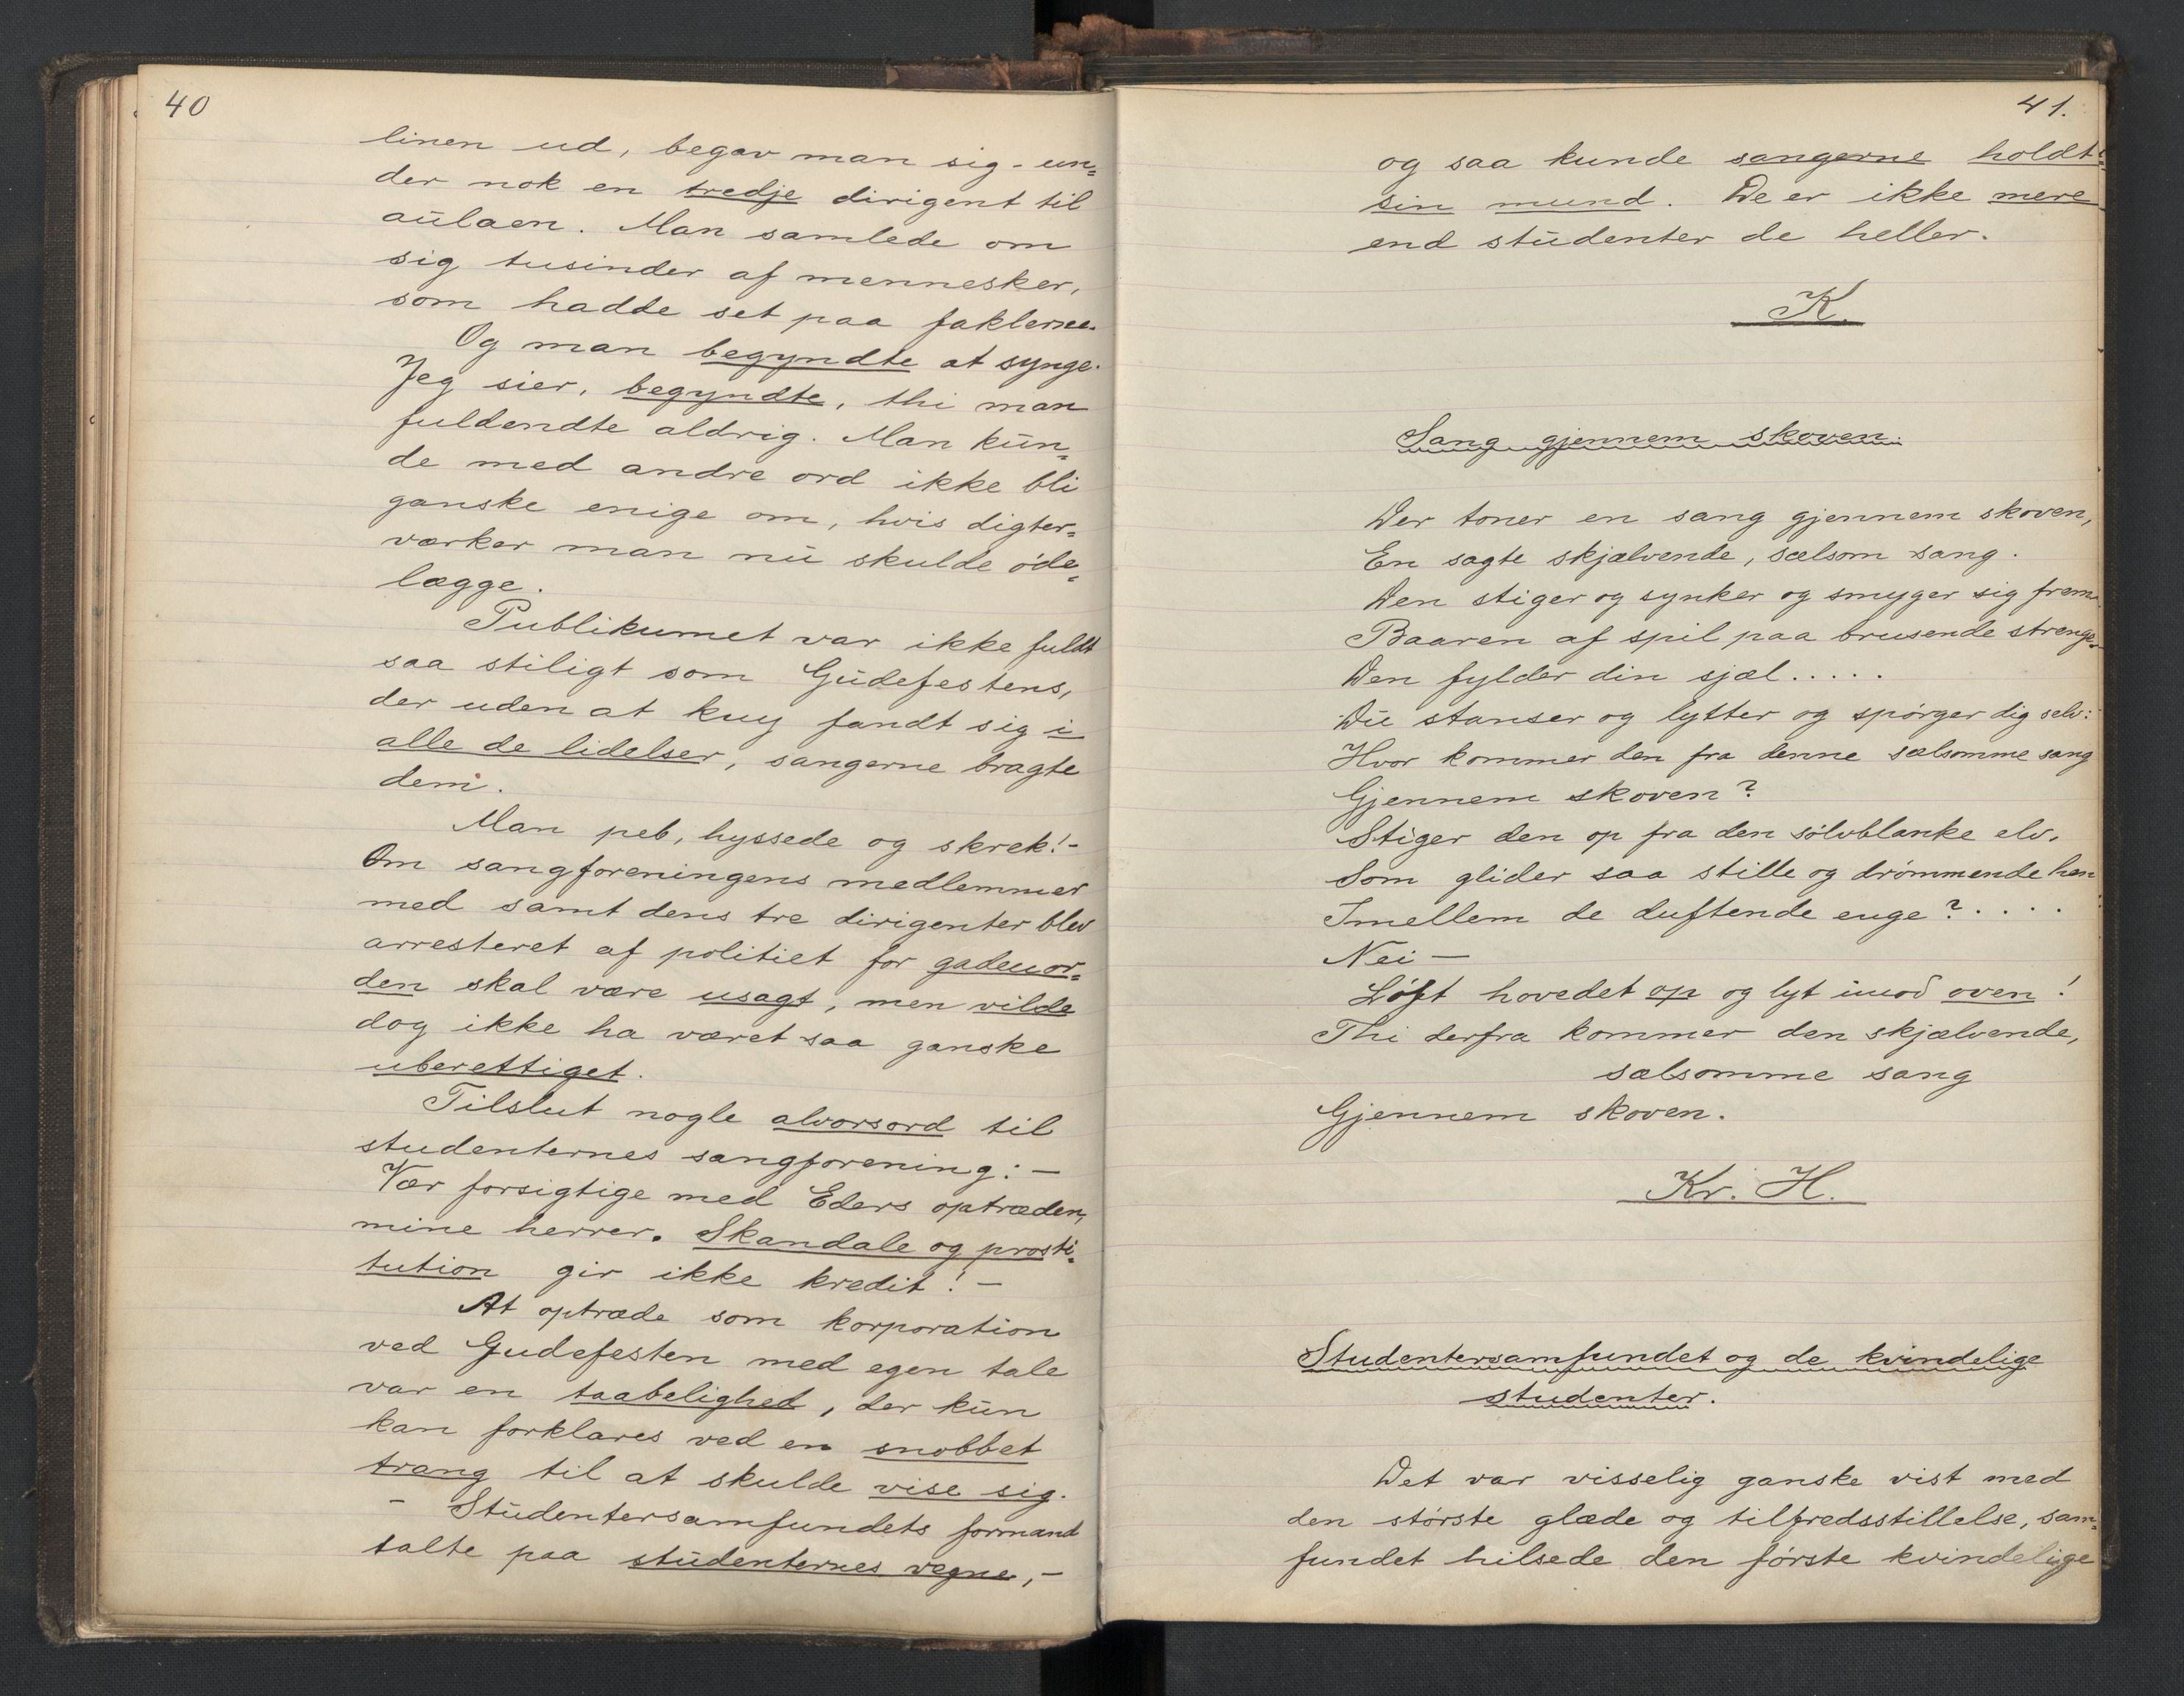 40
linen ud, begav man sig - un=
der nok en tredje dirigent til
aulaen. Man samlede om
sig tusinder af mennesker,
som hadde set paa faklerne.
Og man begyndte at synge.
Jeg sier, begyndte, thi man
fuldendte aldrig. Man kun=
de med andre ord ikke bli
ganske enige om, hvis digter=
værker man nu skulde øde=
lægge.
Publikumet var ikke fuldt
saa stiligt som Gudefestens,
der uden at kny fandt sig i
alle de lidelser, sangerne bragte
dem.
Man peb, hyssede og skrek! -
Om sangforeningens medlemmer
med samt dens tre dirigenter blev
arresteret af politiet for gadeuor=
den skal være usagt, men vilde
dog ikke ha været saa ganske
uberettiget.
Tilslut nogle alvorsord til
studenternes sangforening: -
Vær forsigtige med Eders optræden,
mine herrer. Skandale og prosti=
tution gir ikke kredit! -
At optræde som korporation
ved Gudefesten med egen tale
var en taabelighed, der kun
kan forklares ved en snobbet
trang til at skulde vise sig.
- Studentersamfundets formand
talte paa studenternes vegne, -
41.
og saa kunde sangerne holdt
sin mund. De er ikke mere
end studenter de heller.
K.
Sang gjennem skoven.
Der toner en sang gjennem skoven,
En sagte skjælvende, sælsom sang.
Den stiger og synker og smyger sig frem
Baaren af spil paa brusende strenge.
Den fylder din sjæl.....
Du stanser og lytter og spørger dig selv:
Hvor kommer den fra denne sælsomme sang
Gjennem skoven?
Stiger den op fra den sølvblanke elv,
Som glider saa stille og drømmende hen
Imellem de duftende enge? ....
Nei —
Løft hovedet op og lyt imod oven!
Thi derfra kommer den skjælvende,
sælsomme sang
Gjennem skoven.
Kr. H.
Studentersamfundet og de kvindelige
studenter.
Det var visselig ganske vist med
den største glæde og tilfredsstillelse, sam=
fundet hilsede den første kvindelige